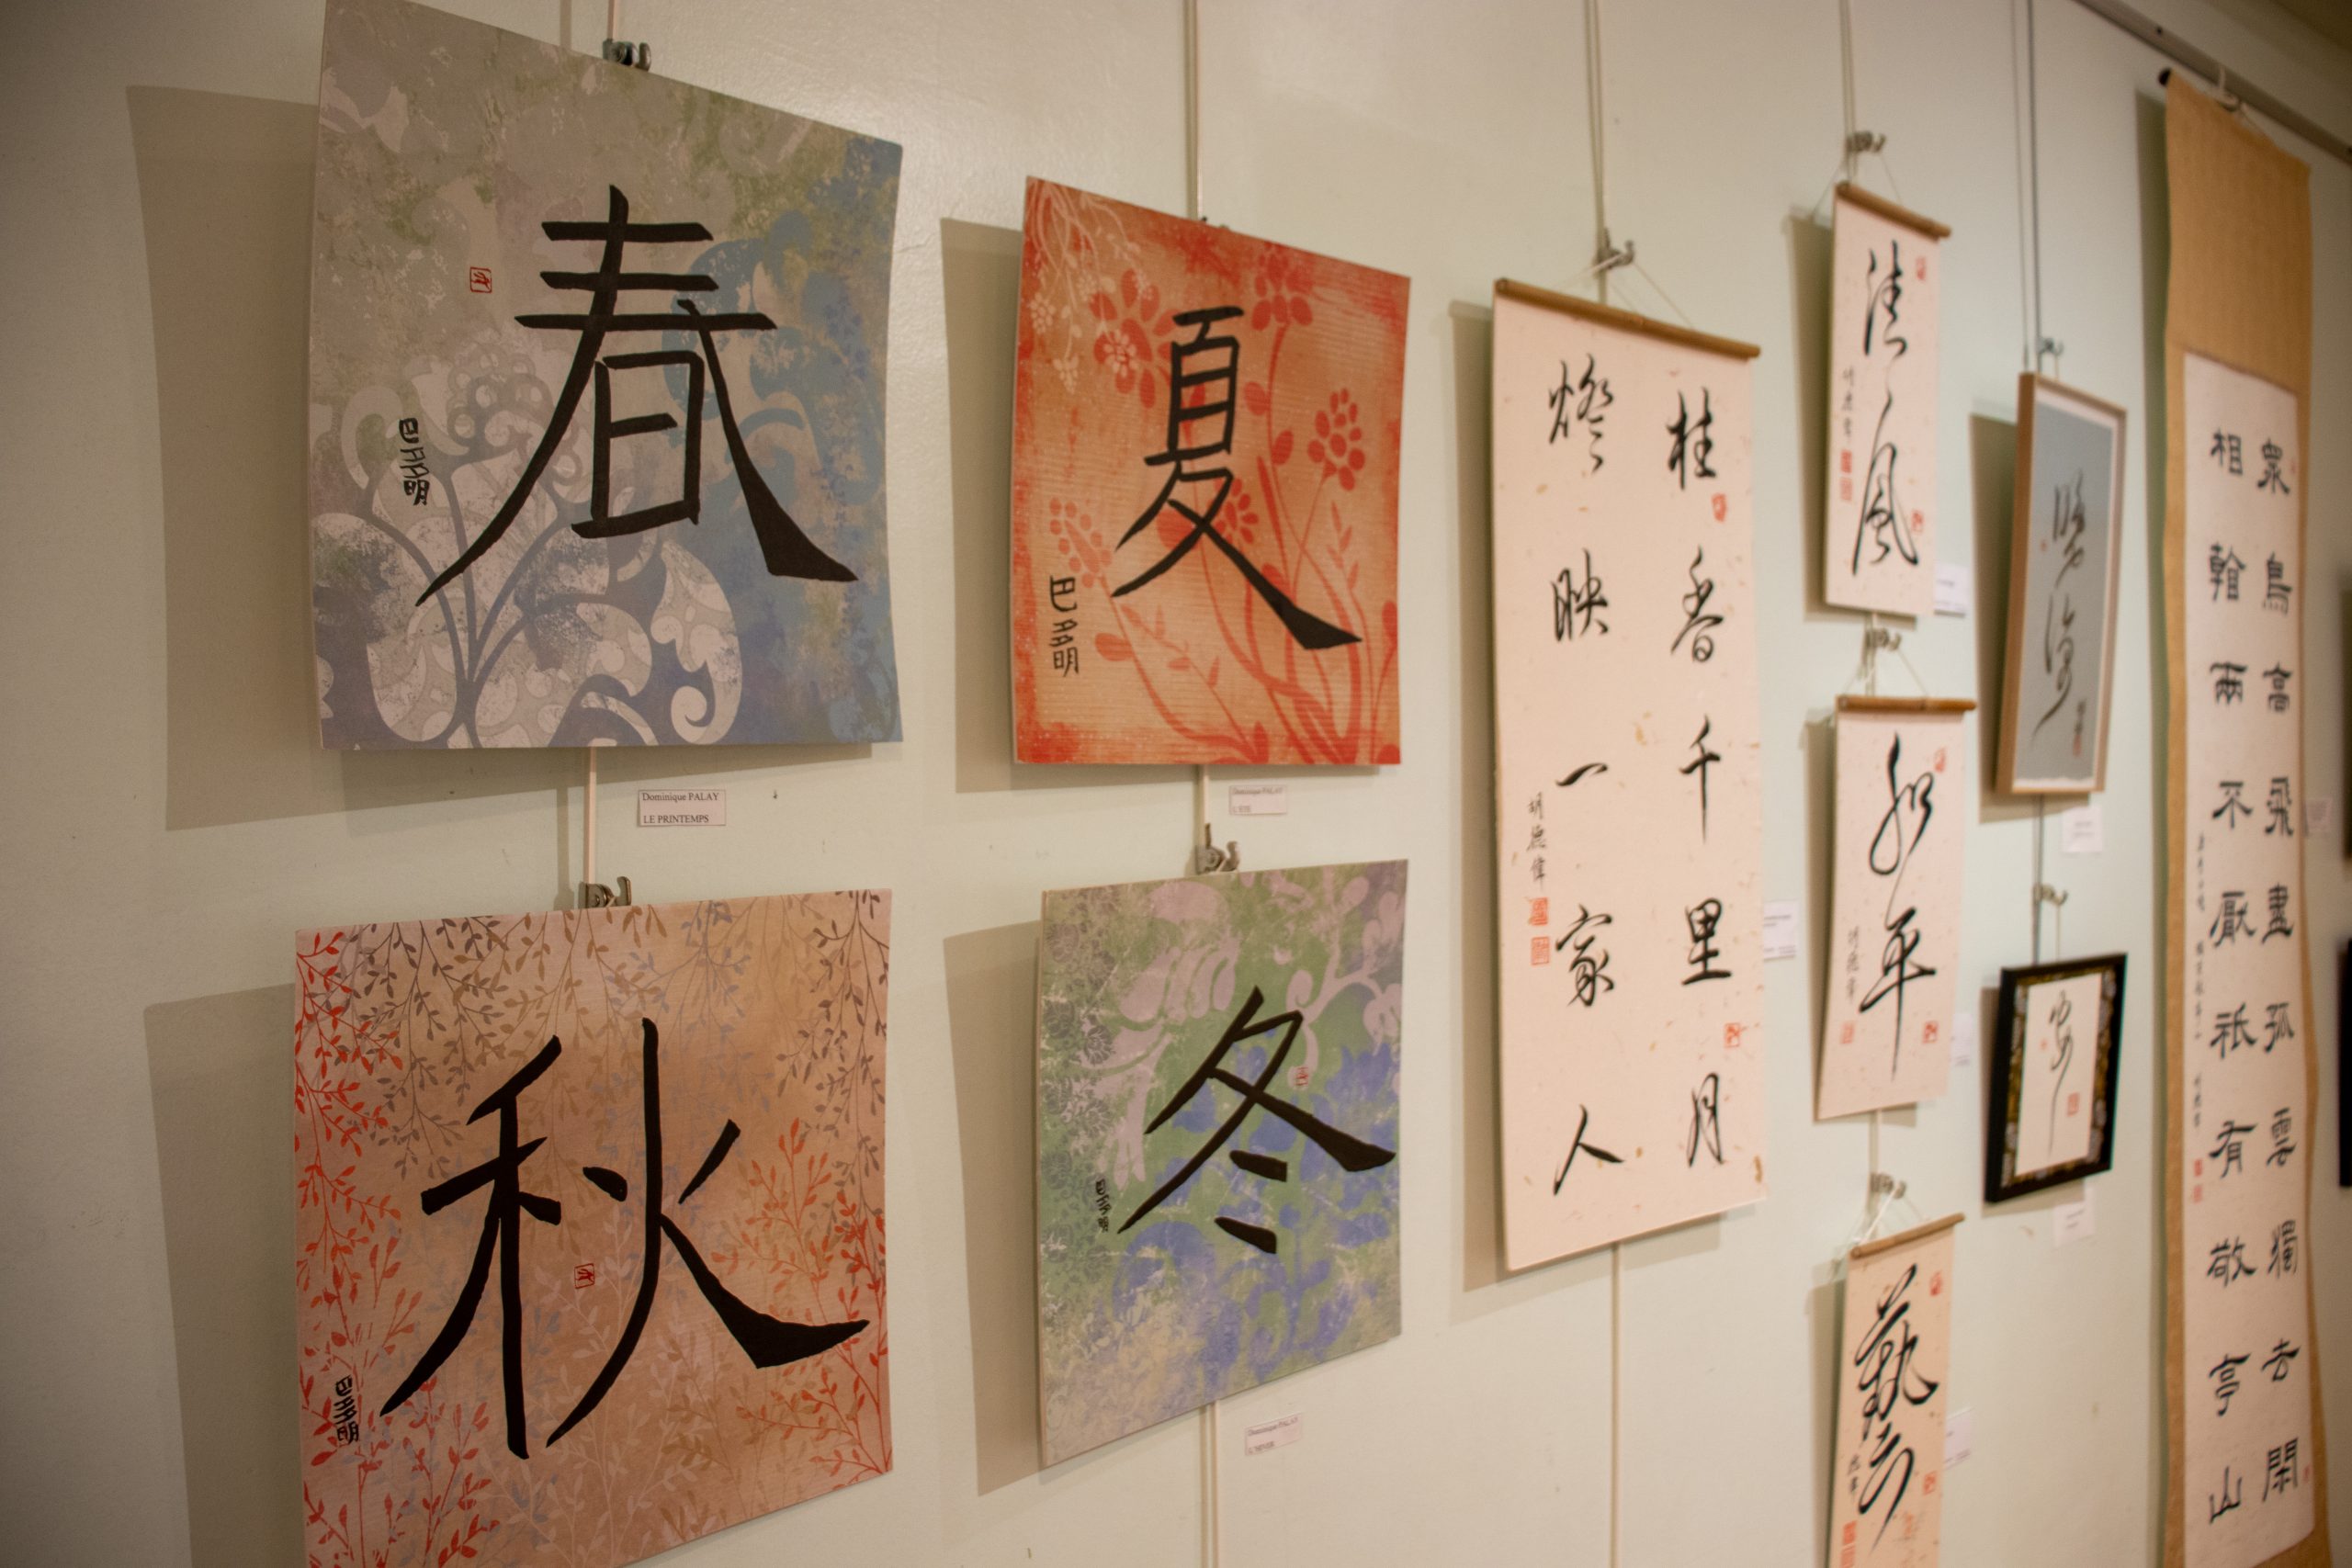 春
巴多明
Dominique PALAY
LE PRINTEMPS
夏
巴多明
Dominique PALAY
L'ETE
秋
巴多明
冬
巴多明
Dominique PALAY
L'HIVER
桂香千里月
燈映一家人
胡德偉
清風
胡德偉
和平
胡德偉
藝
眾鳥高飛盡孤雲獨去閑
相看兩不厭祇有敬亭山